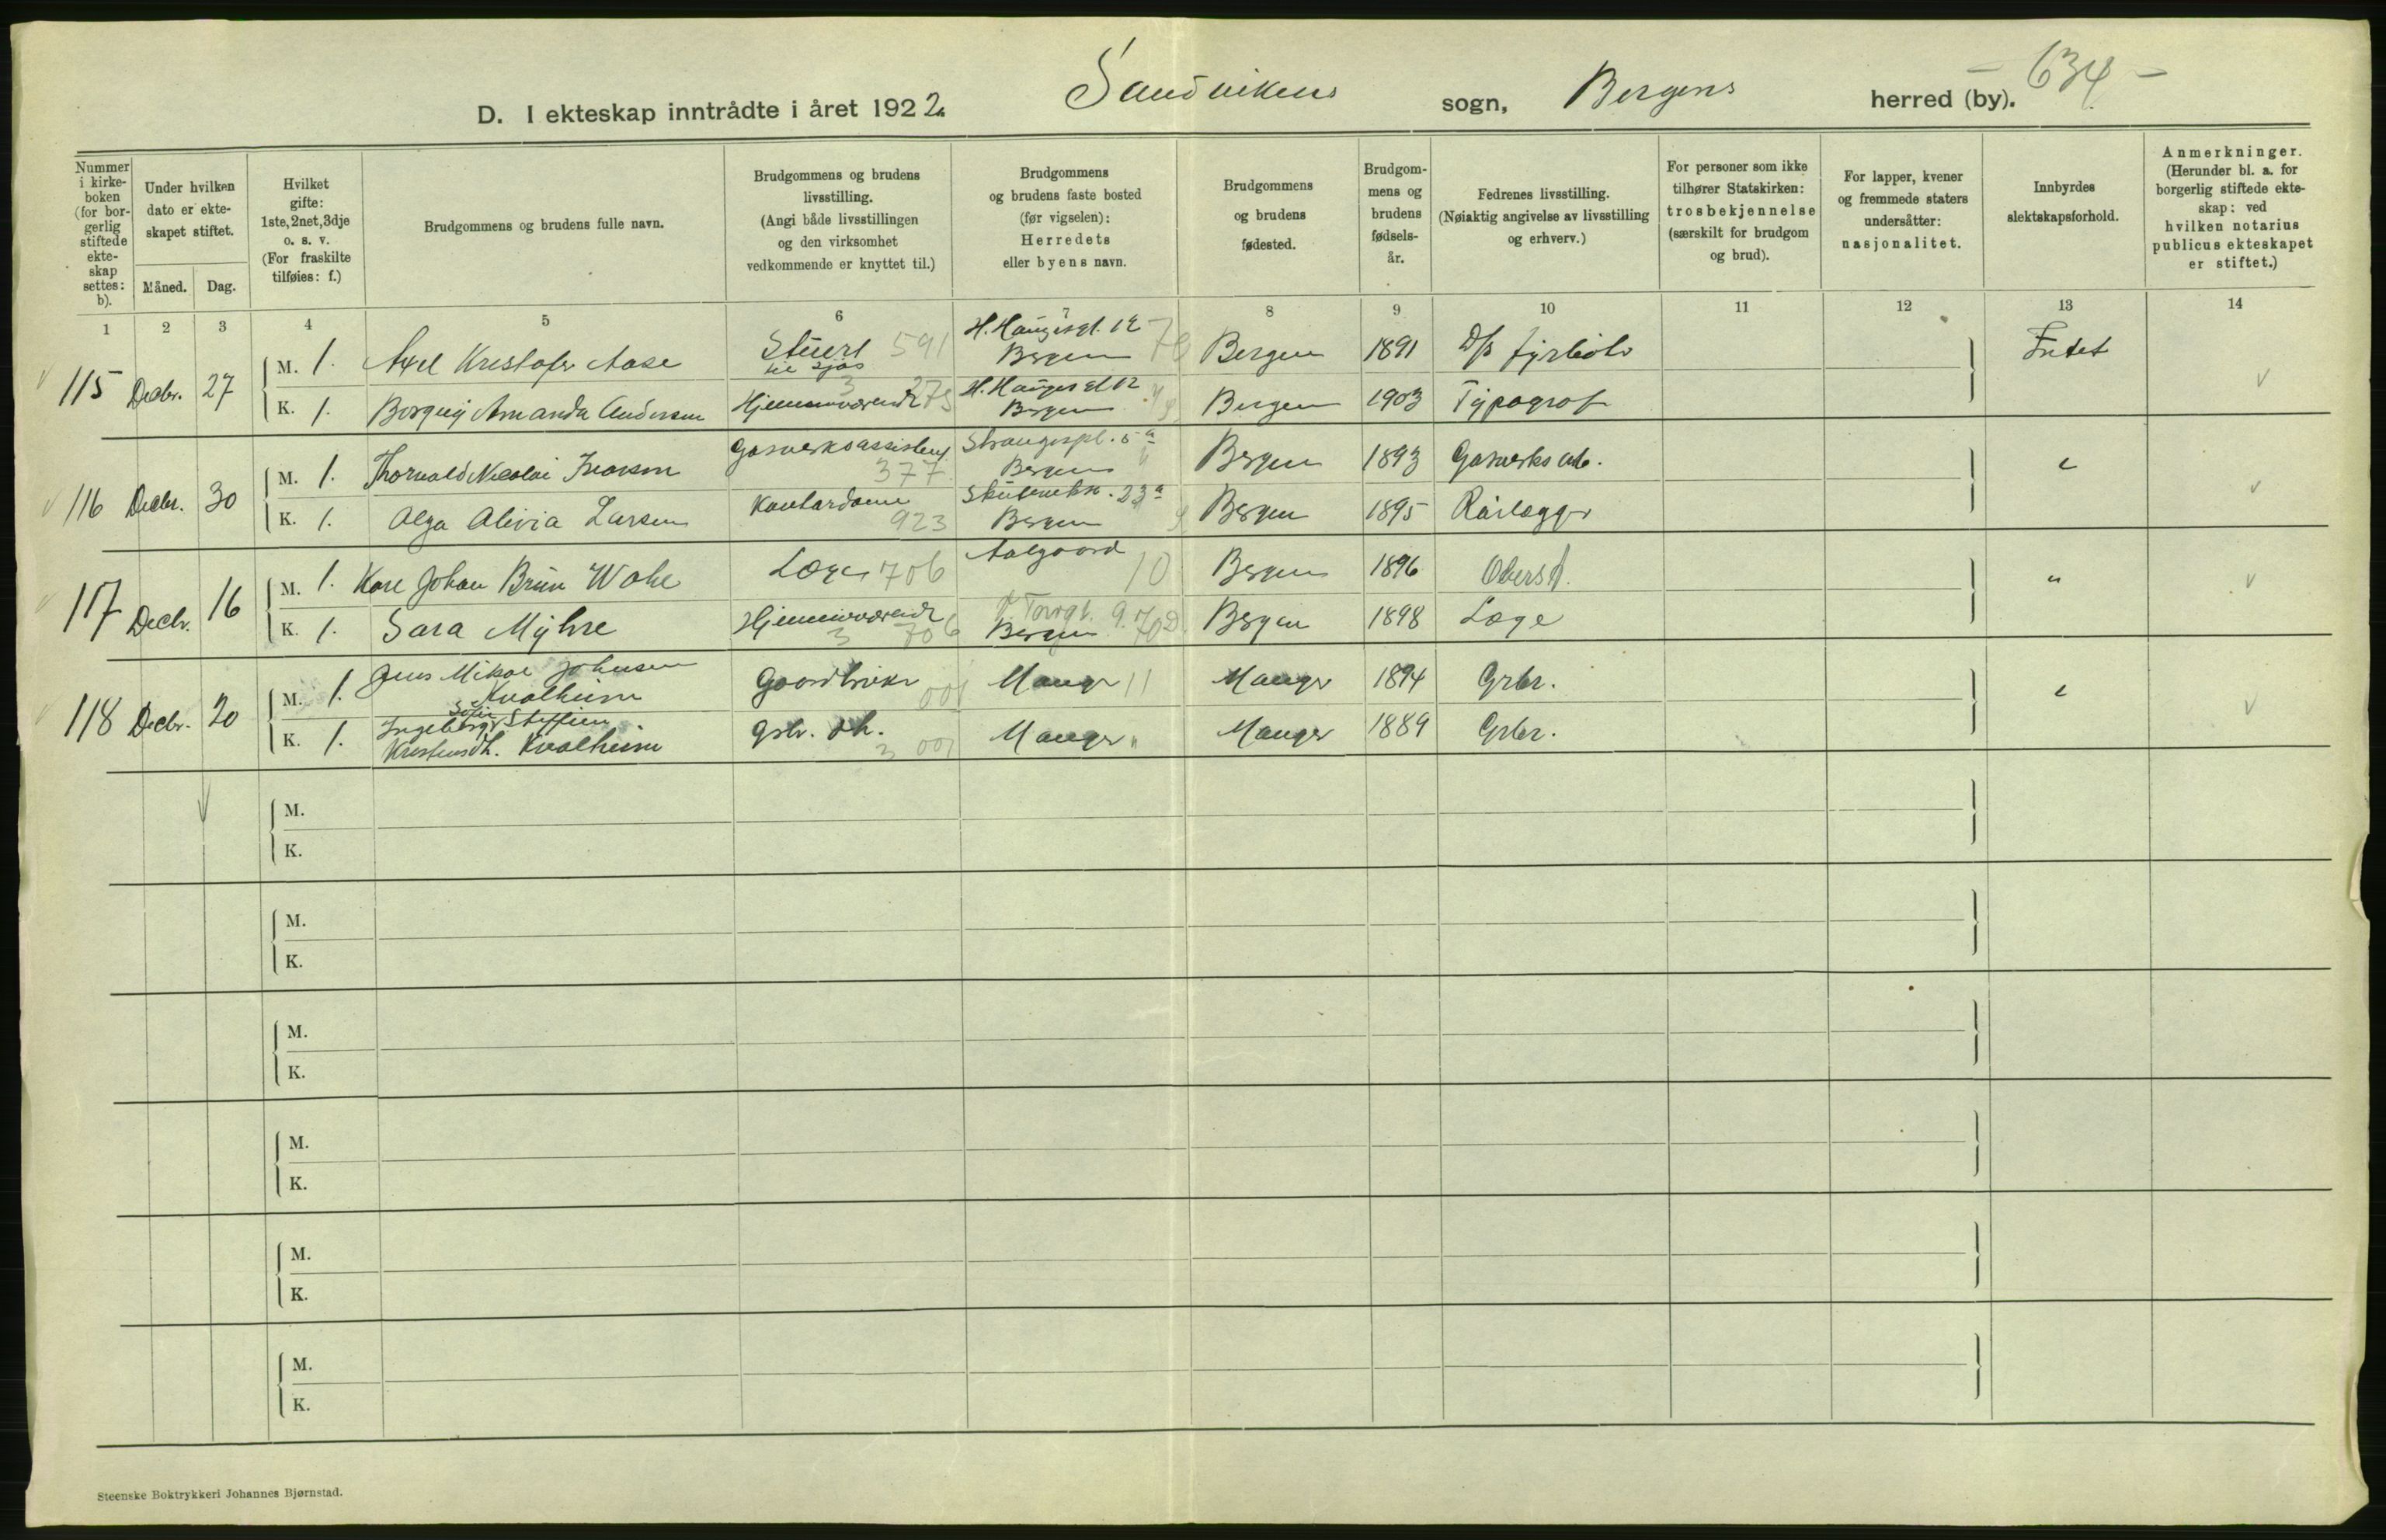 D. I ekteskap inntrådte i året 1922. Sandvikens sogn, Bergens herred (by). - 634 -
Nummer i kirkeboken (for borgerlig stiftede ekteskap settes: b).
Under hvilken dato er ekteskapet stiftet.
Måned. Dag.
Hvilket gifte: 1ste, 2net, 3dje o. s. v. (For fraskilte tilføies: f.)
Brudgommens og brudens fulle navn.
Brudgommens og brudens livsstilling. (Angi både livsstillingen og den virksomhet vedkommende er knyttet til.)
Brudgommens og brudens faste bosted (før vigselen): Herredets eller byens navn.
Brudgommens og brudens fødested.
Brudgommens og brudens fødselsår.
Fedrenes livsstilling. (Nøiaktig angivelse av livsstilling og erhverv.)
For personer som ikke tilhører Statskirken: trosbekjennelse (særskilt for brudgom og brud).
For lapper, kvener og fremmede staters undersåtter: nasjonalitet.
Innbyrdes slektskapsforhold.
Anmerkninger. (Herunder bl. a. for borgerlig stiftede ekteskap: ved hvilken notarius publicus ekteskapet er stiftet.)
1 2 3 4 5 6 7 8 9 10 11 12 13 14
115 Decbr. 27 M. 1. Axel Kristofer Aase 591 H. Haugesgt. 12 Bergen Bergen 1891 Intet
K. 1. Borgny Amanda Andersen Hjemmeværende H. Haugesgt 12 Bergen Bergen 1903 Typograf
116 Decbr. 30 M. 1. Thorvald Nicolai Gasverksassistent 377 Strangespl. 5a Bergen Bergen 1893 Gasverks arb.
K. 1. Olga Alivia Larsen Kontordame 923 23a Bergen Bergen 1895 Rørlægger
117 Decbr. 16 M. 1. Kare Johan Brun Læge 706 Aalgaard 10 Bergen 1896 Oberst. "
K. 1. Sara Myhre Hjemmeværende 3 706 Torvgt. 9. Bergen Bergen 1898 Læge
118 Decbr. 20 M. 1. Jens Mikal Johnsen Kvalheim Gaardbruker 001 Manger 11 Manger 1894 Grbr.
K. 1. Ingeborg Sofie Steffine Kristensdh. Kvalheim Grbr. dh. 3 001 Manger " Manger 1889 Grbr.
M.
K.
M.
K.
M.
K.
M.
K.
M.
K.
M.
K.
Steenske Boktrykkeri Johannes Bjørnstad.